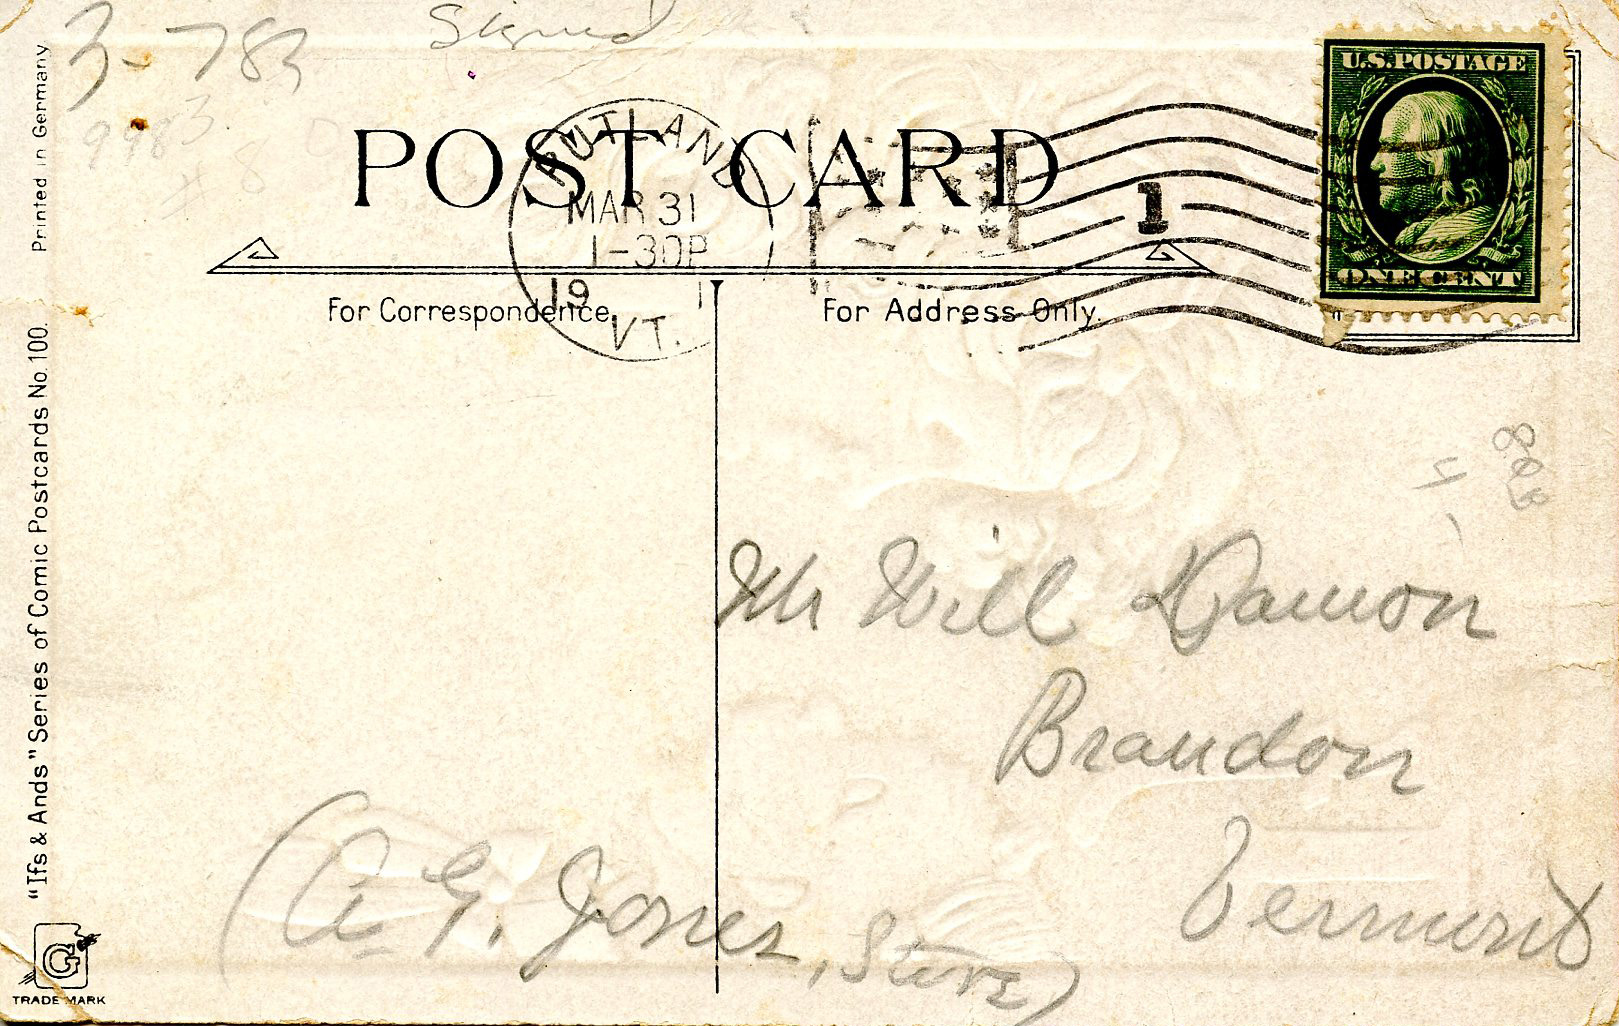 3-783
Signed
9983
U.S. POSTAGE
ONE CENT
POST CARD
RUTLAND
MAR 31
1-30P
19 1
VT.
1
For Correspondence.
For Address Only.
Printed in Germany
"Ifs & Ands" Series of Comic Postcards No. 100.
G
TRADE MARK
Mr Will Damon
Brandon
Vermont
(A. G. Jones, Store)